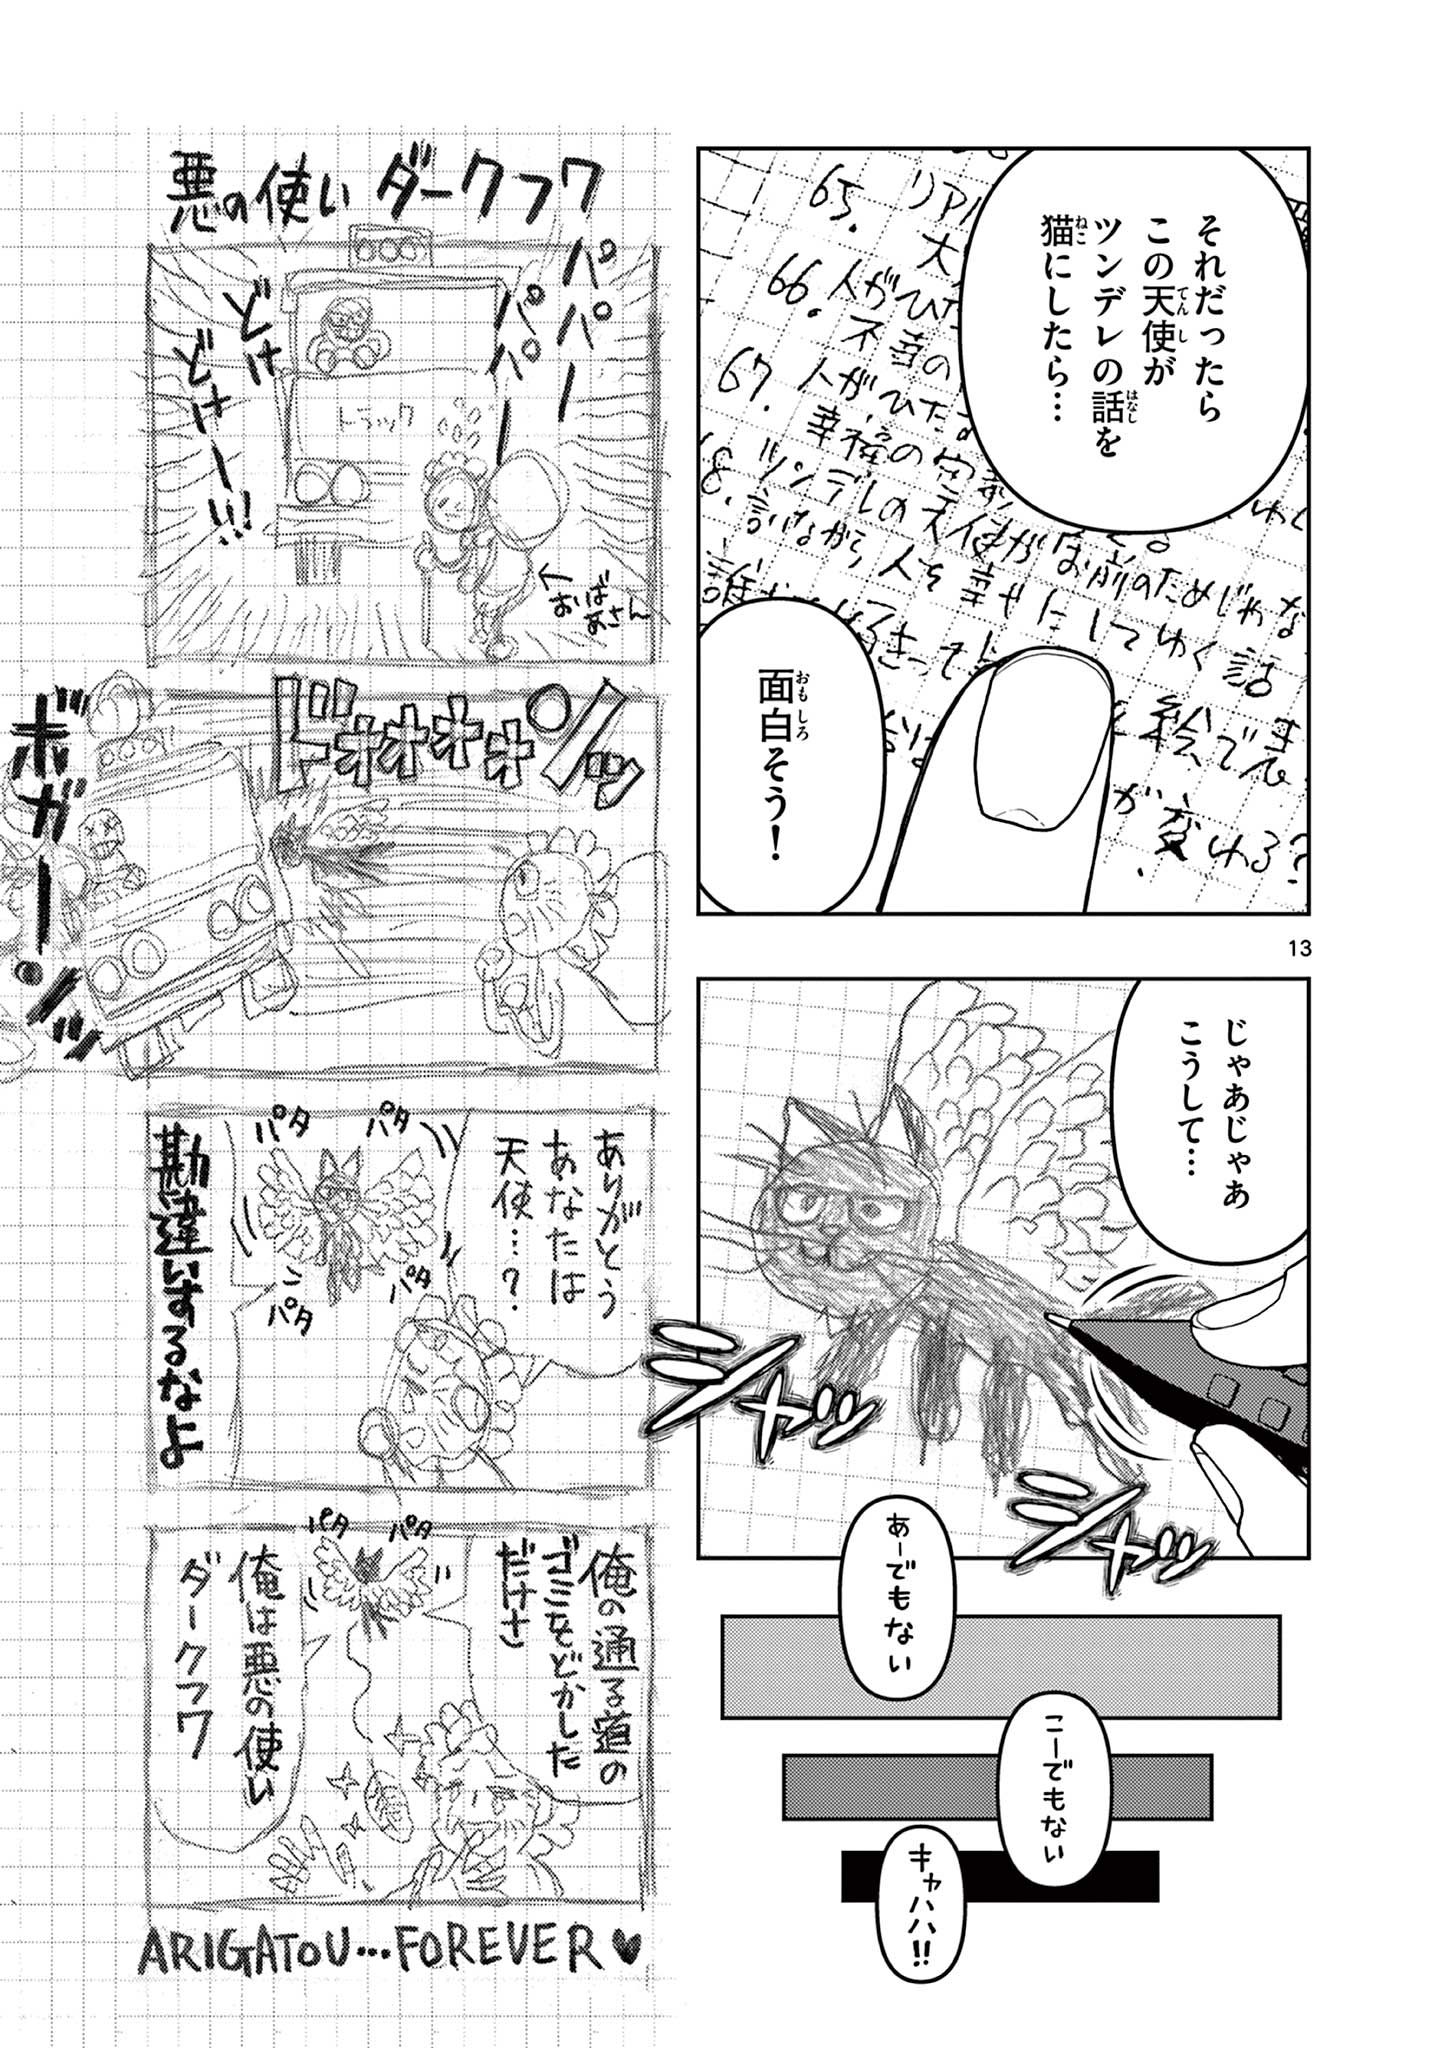 それだったら
この天使が
ツンデレの話を
猫にしたら…
てんし
はなし
ねこ
65. リアル
大
66. 人がひた
不幸の
67. 人がひたす
幸福の
8. ツンデレの天使がお前のためじゃな
言いながら人を幸せにしてゆく話
絵で表
が変わる?
面白そう!
おもしろ
13
じゃあじゃあ
こうして…
シャッ
シャッ
あーでもない
こーでもない
キャハハ!!
悪の使い ダークフワ
パパー
パパー
どけ
どけー!!!
トラック
←おばあさん
ドォォォォンッ
ボガーンッ
ありがとう
あなたは
天使…?
パタ
パタ
パタ
パタ
勘違いするなよ
俺の通る道の
ゴミをどかした
だけさ
パタ
パタ
俺は悪の使い
ダークフワ
ARIGATOU…FOREVER♥